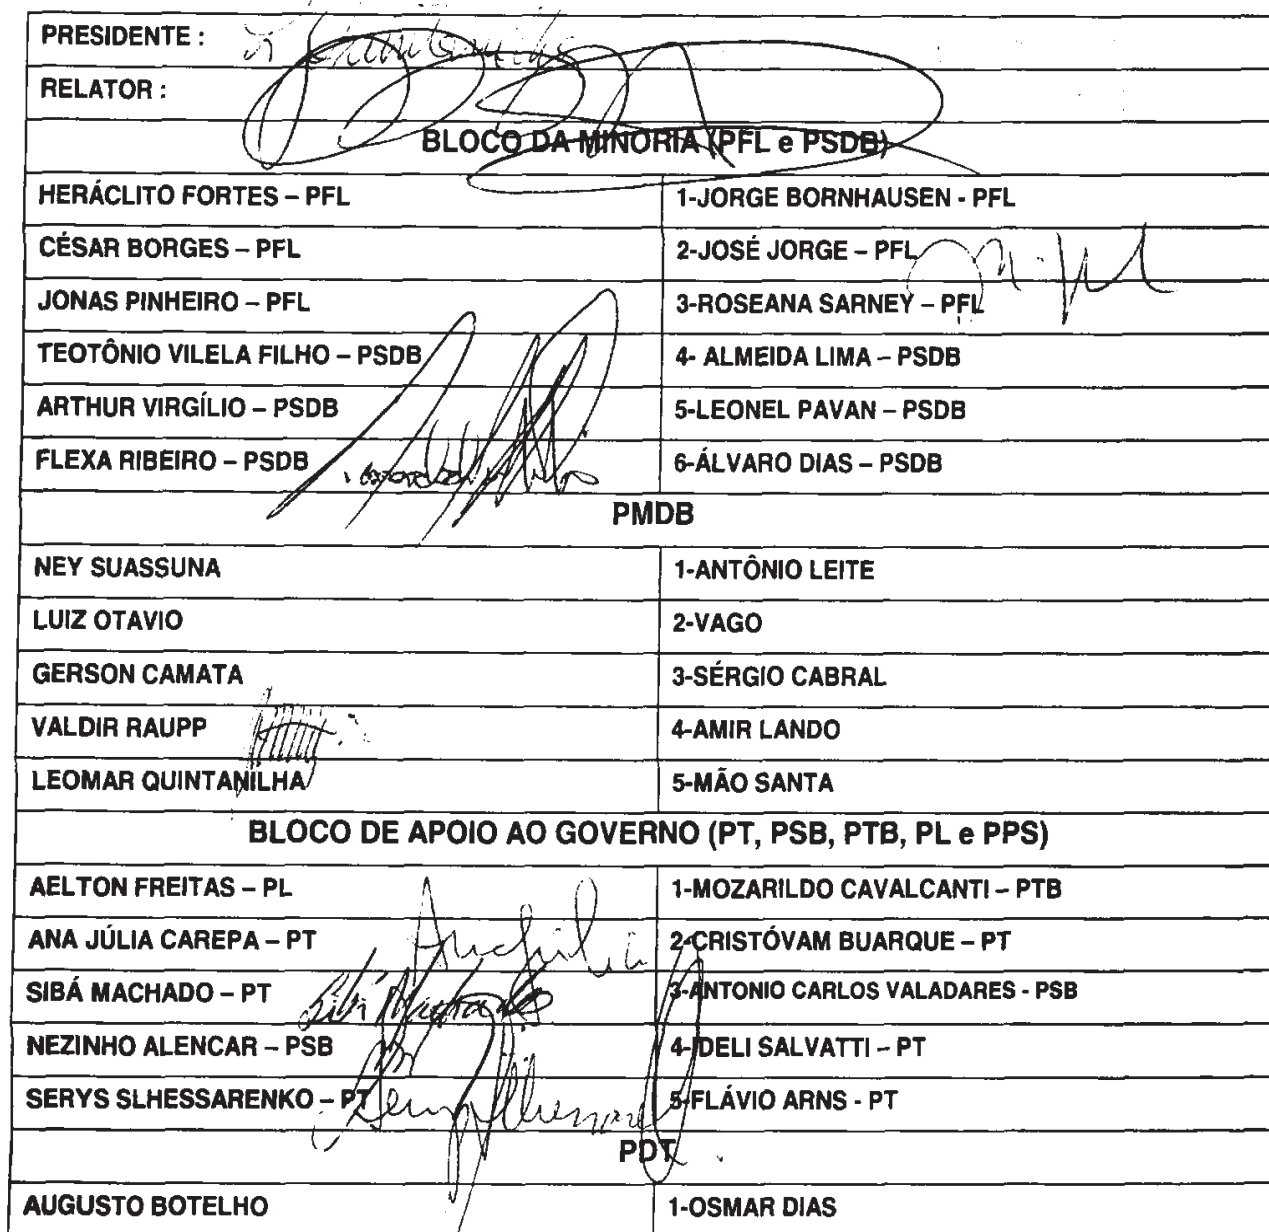 PRESIDENTE :
RELATOR :
BLOCO DA MINORIA (PFL e PSDB)
HERÁCLITO FORTES – PFL
1-JORGE BORNHAUSEN - PFL
CÉSAR BORGES – PFL
2-JOSÉ JORGE – PFL
JONAS PINHEIRO – PFL
3-ROSEANA SARNEY – PFL
TEOTÔNIO VILELA FILHO – PSDB
4- ALMEIDA LIMA – PSDB
ARTHUR VIRGÍLIO – PSDB
5-LEONEL PAVAN – PSDB
FLEXA RIBEIRO – PSDB
6-ÁLVARO DIAS – PSDB
PMDB
NEY SUASSUNA
1-ANTÔNIO LEITE
LUIZ OTAVIO
2-VAGO
GERSON CAMATA
3-SÉRGIO CABRAL
VALDIR RAUPP
4-AMIR LANDO
LEOMAR QUINTANILHA
5-MÃO SANTA
BLOCO DE APOIO AO GOVERNO (PT, PSB, PTB, PL e PPS)
AELTON FREITAS – PL
1-MOZARILDO CAVALCANTI – PTB
ANA JÚLIA CAREPA – PT
2-CRISTÓVAM BUARQUE – PT
SIBÁ MACHADO – PT
Sibá Machado
3-ANTONIO CARLOS VALADARES - PSB
NEZINHO ALENCAR – PSB
4-IDELI SALVATTI – PT
SERYS SLHESSARENKO – PT
5-FLÁVIO ARNS - PT
PDT
AUGUSTO BOTELHO
1-OSMAR DIAS